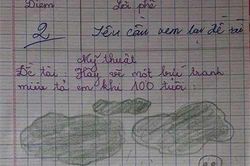 Điểm Lời phê
2 Yêu cầu xem lại đề tài
Mỹ thuật
Đề tài: Hãy vẽ một bức tranh
miêu tả em khi 100 tuổi